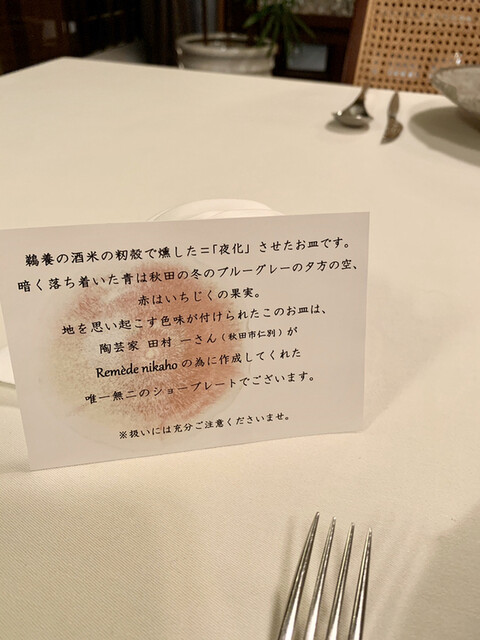 鵜養の酒米の籾殻で燻した＝「夜化」させたお皿です。
暗く落ち着いた青は秋田の冬のブルーグレーの夕方の空、
赤はいちじくの果実。
地を思い起こす色味が付けられたこのお皿は、
陶芸家 田村 一さん（秋田市仁別）が
Remède nikaho の為に作成してくれた
唯一無二のショープレートでございます。
※扱いには充分ご注意くださいませ。